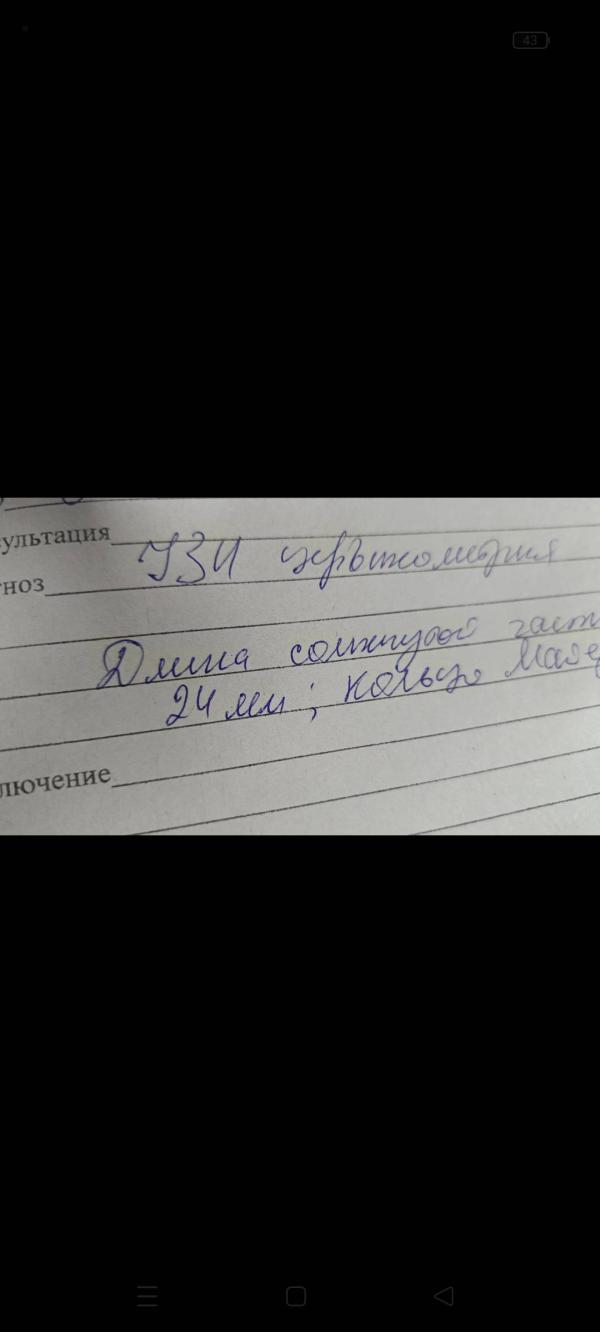 43
ультация
УЗИ цервикометрия
ноз
Длина сомкнутой част
24 мм; кольцо
лючение